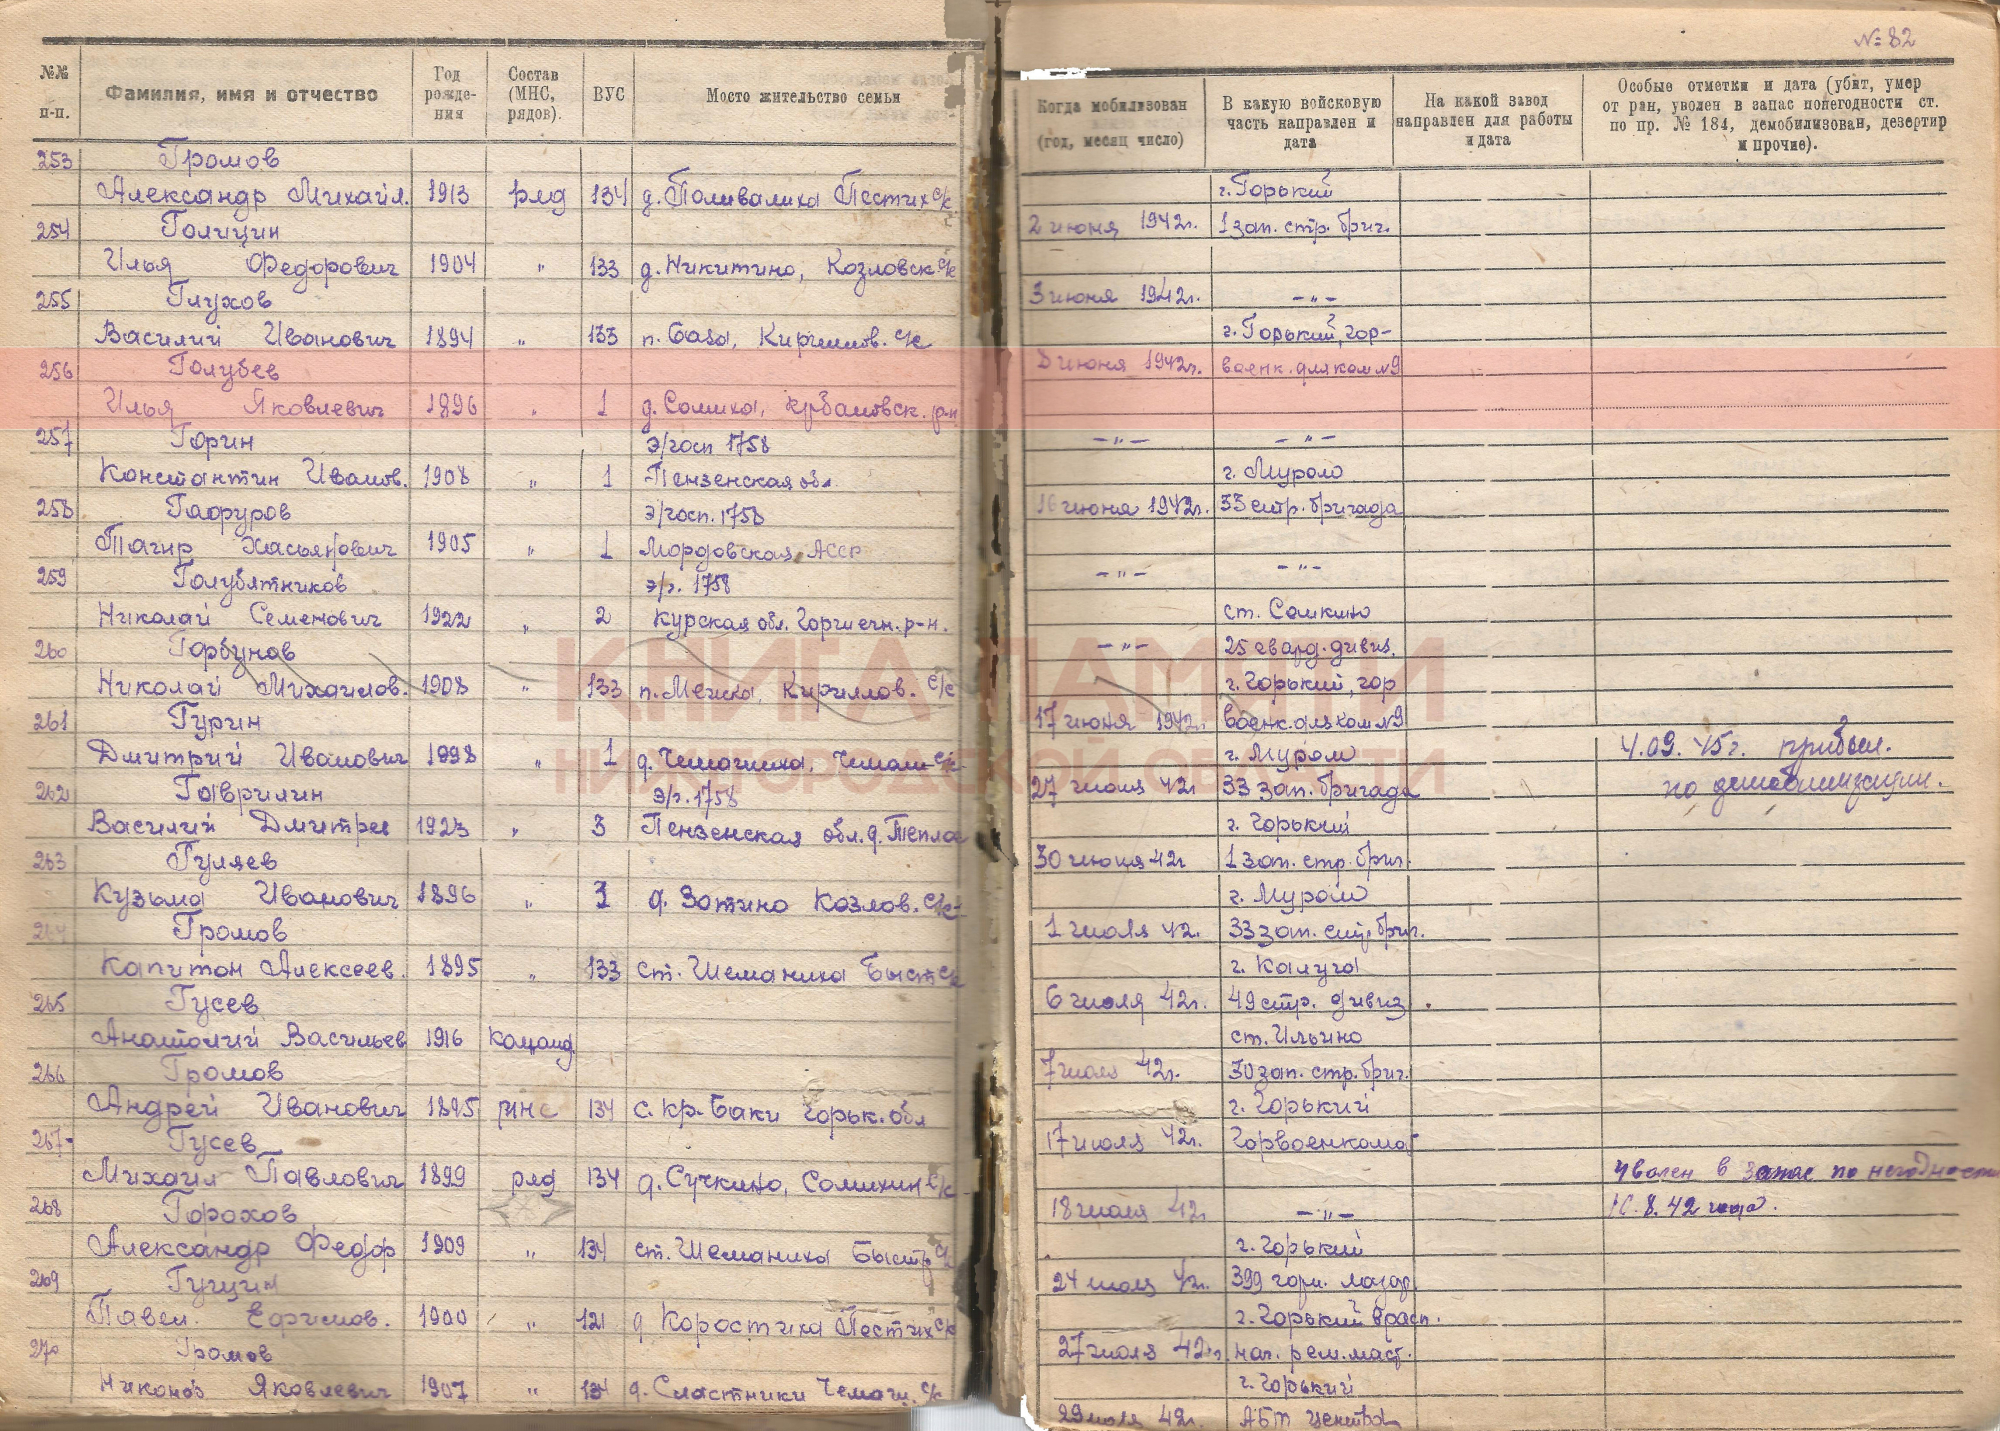 № 82
№№ п-п.
Фамилия, имя и отчество
Год рожде-ния
Состав (МНС, рядов).
ВУС
Место жительство семьи
Когда мобилизован (год, месяц число)
В какую войсковую часть направлен и дата
На какой завод направлен для работы и дата
Особые отметки и дата (убит, умер от ран, уволен в запас понегодности ст. по пр. № 184, демобилизован, дезертир и прочие).
253 Громов
Александр Михайл. 1913 ряд 134 д. Поливалиха Пестих с/с
г. Горький
2 июня 1942г. 1 зап. стр. бриг.
254 Голицин
Илья Федорович 1904 " 133 д. Никитино, Козловск с/с
3 июня 1942г. -"-
255 Глухов
Василий Иванович 1894 " 133 п. База, Кириллов. с/с
г. Горький, гор-
8 июня 1942г. военк. для ком №9
256 Голубев
Илья Яковлевич 1896 " 1 д. Сомиха, р-н
-"- -"-
257 Горин э/госп 1758
Константин Иванов. 1908 " 1 Пензенская обл
г. Муром
16 июня 1942г. 33 стр. бригада
258 Гафуров э/госп. 1758
Тагир Хасьянович 1905 " 1 Мордовская АССР
-"- -"-
259 Голубятников э/г. 1758
Николай Семенович 1922 " 2 Курская обл. Горшечн. р-н.
ст. Сейкино
-"- 25 гвард. дивиз.
260 Горбунов
Николай Михайлов. 1908 " 133 п. Кириллов. с/с
г. Горький, гор
17 июня 1942г. военк. для ком №9
261 Гурин
Дмитрий Иванович 1898 " 1 д.
г. Муром
27 июня 42г 33 зап. бригада
4.09.45г. прибыл.
по демобилизации.
262 Гаврилин э/г. 1758
Василий Дмитрие 1923 " 3 Пензенская обл. д. Тепло
г. Горький
30 июня 42г 1 зап. стр. бриг.
263 Гуляев
Кузьма Иванович 1896 " 3 д. Зотино Козлов. с/с
г. Муром
1 июля 42. 33 зап. стр. бриг.
264 Громов
Капитон Алексеев. 1895 " 133 ст. Шеманиха Быст с/с
г. Калуга
6 июля 42г. 49 стр. дивиз.
265 Гусев
Анатолий Васильев 1916 команд.
ст. Ильино
7 июля 42г. 30 зап. стр. бриг.
266 Громов
Андрей Иванович 1895 мнс 134 с. Кр-Баки Горьк. обл
г. Горький
17 июля 42г. Горвоенкомат
267 Гусев
Михаил Павлович 1899 ряд 134 д. Сучкино, Сомихин с/с
18 июля 42г -"-
уволен в запас по негодности
8. 42 года.
268 Горохов
Александр Федор 1909 " 134 ст. Шеманиха Быстр с/с
г. Горький
24 июля 42г. 399
269 Гущин
Павел Ефимов. 1900 " 121 д Коростиха Пестих с/с
г. Горький в расп.
27 июля 42г. нач. рем. маст.
270 Громов
Никонор Яковлевич 1907 " 134 д. Сластники Чемаш. с/с
г. Горький
29 июля 42г. АБТ центр
КНИГА ПАМЯТИ
НИЖЕГОРОДСКОЙ ОБЛАСТИ